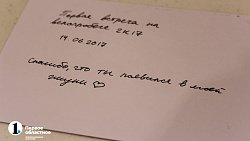 Первая встреча на
велопробеге 2К17
14.06.2017
Спасибо, что ты появился в моей
жизни ♡
1 Первое
областное